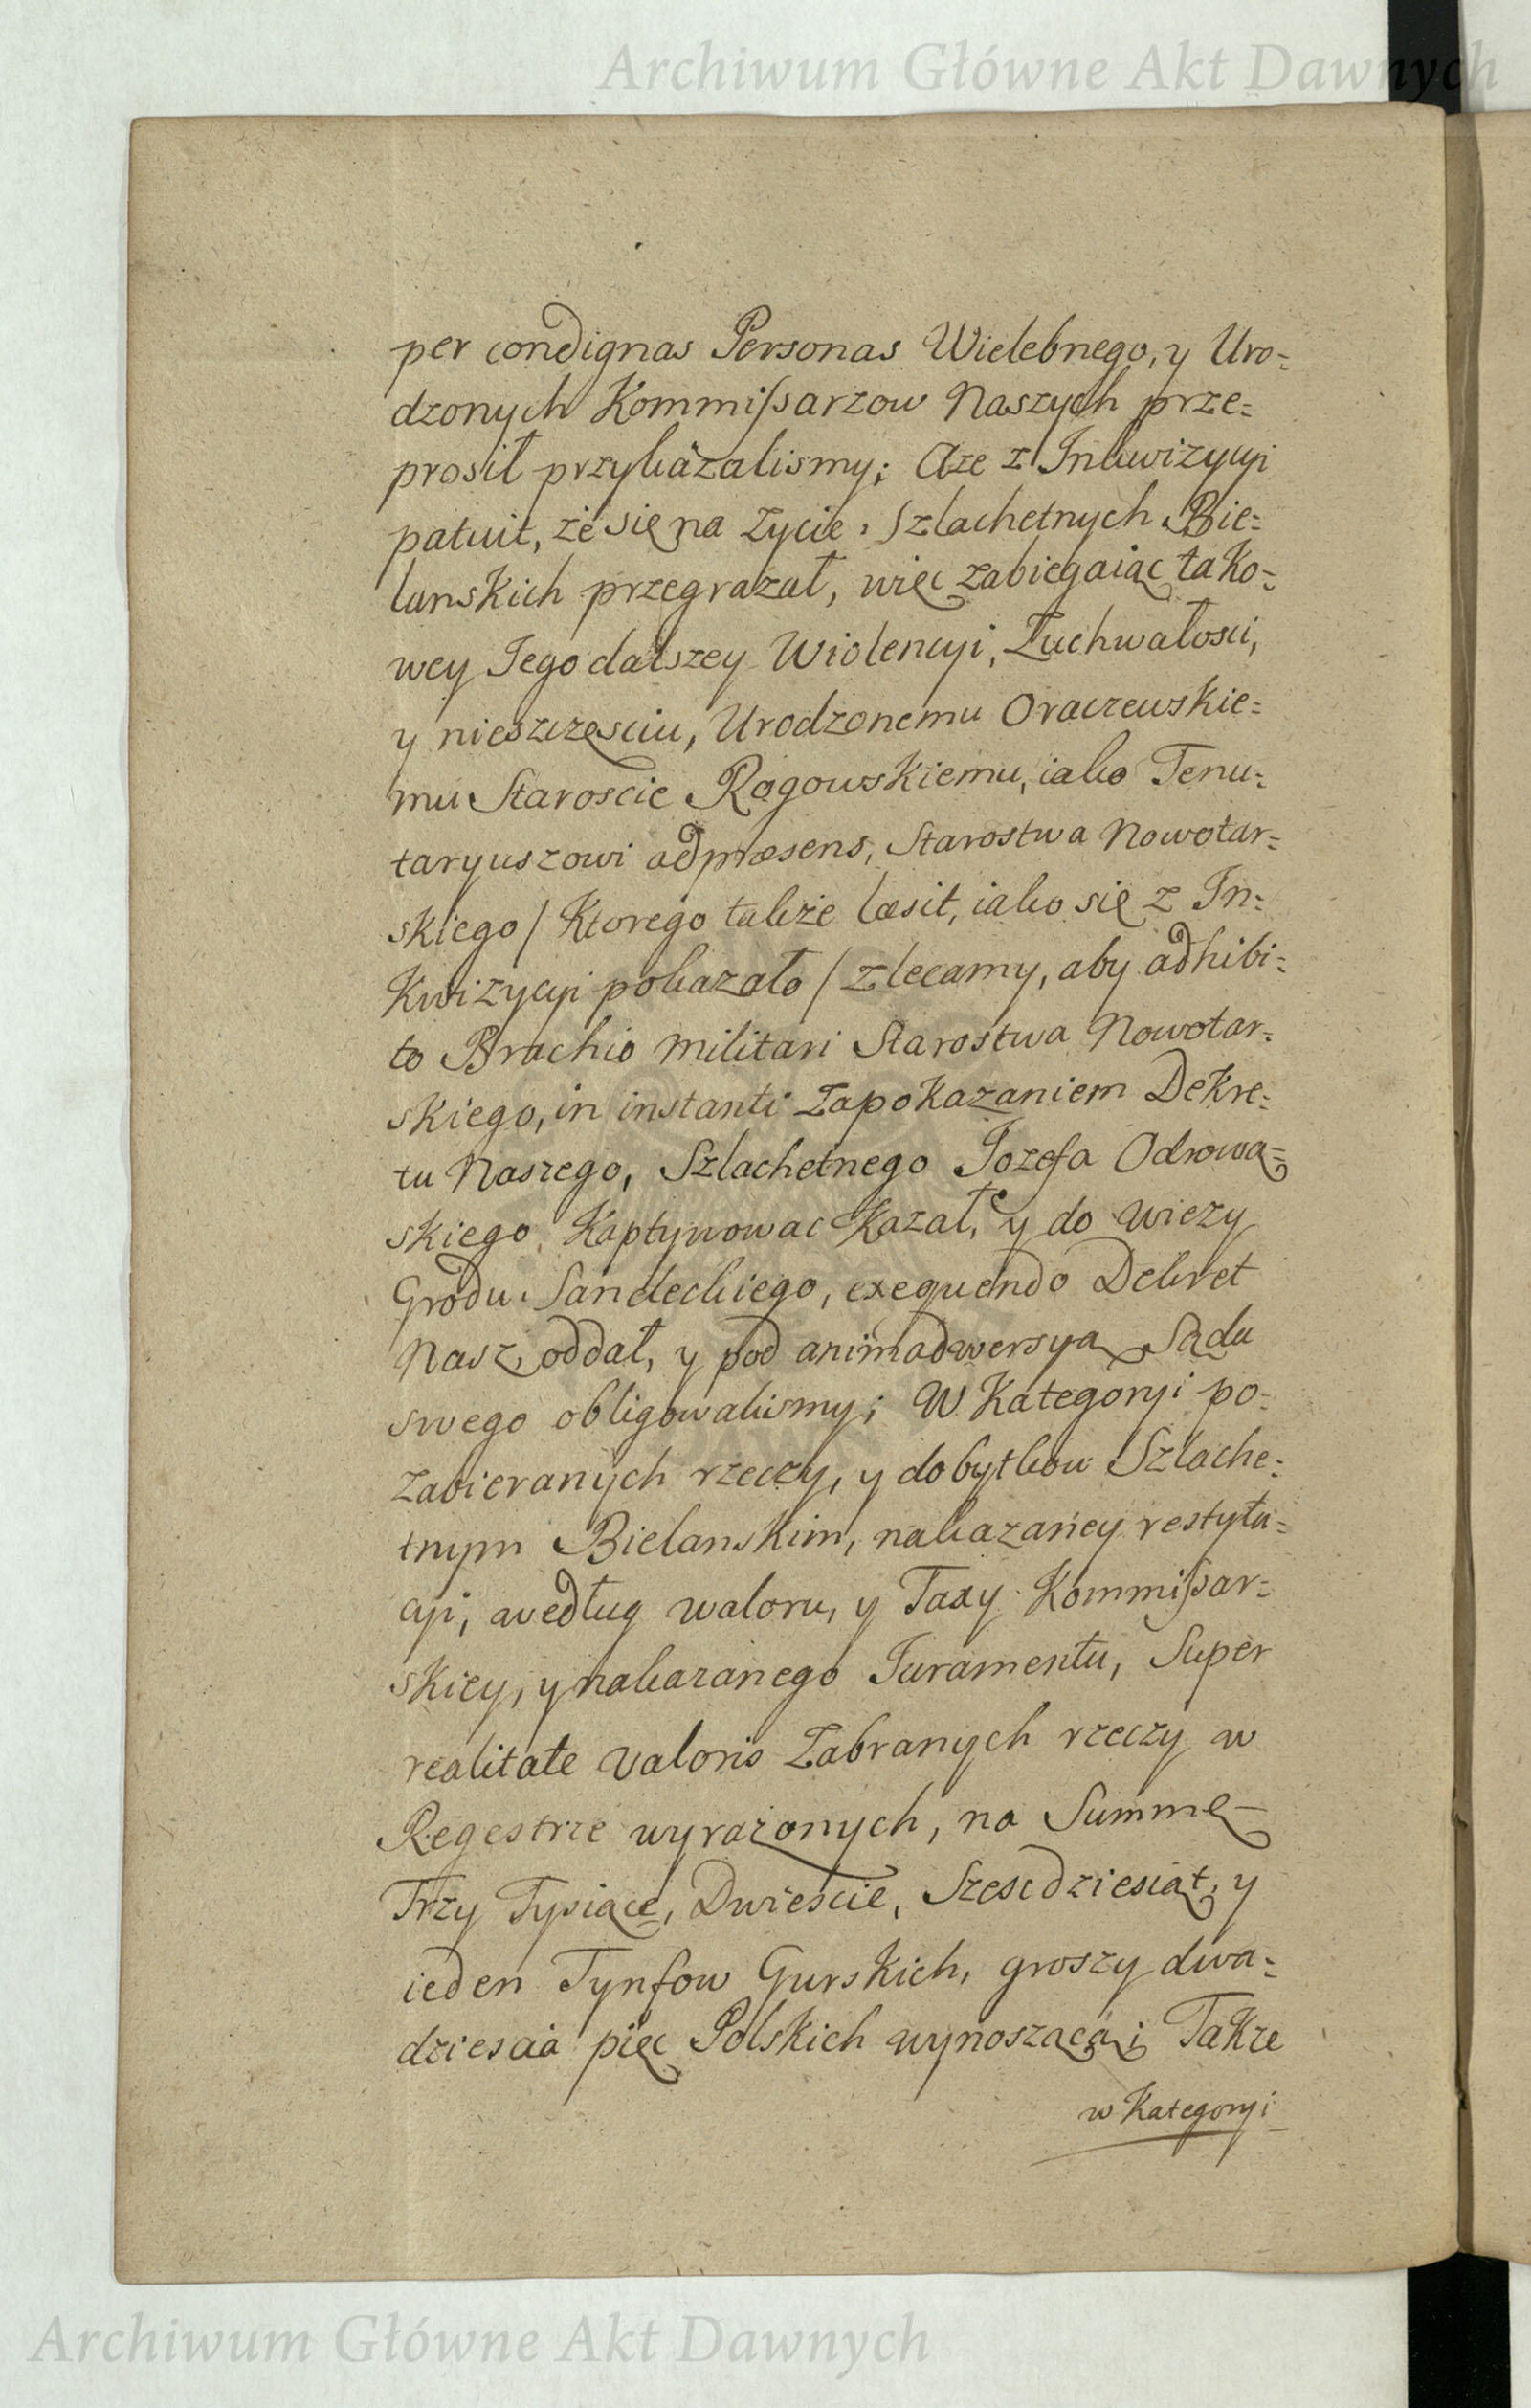 Archiwum Główne Akt Dawnych
per condignas Personas Wielebnego, y Uro=
dzonych Kommissarzow Naszych prze=
prosił przykazalismy; Aże z Inkwizycyi
patuit, że się na życie Szlachetnych Bie=
lanskich przegrazał, więc zabiegaiąc tako=
wey Jego dalszey Wiolencyi, Zuchwałosci,
y nieszczęsciu, Urodzonemu Oraczewskie=
mu Staroscie Rogowskiemu, iako Tenu=
taryuszowi adpræsens, Starostwa Nowotar=
skiego / Ktorego także læsit, iako się z In=
kwizycyi pokazało / zlecamy, aby adhibi=
to Brachio militari Starostwa Nowotar=
skiego, in instanti zapokazaniem Dekre=
tu Naszego, Szlachetnego Jozefa Odrową=
skiego, Kaptywowac Kazał, y do wiezy
Grodu Sandeckiego, exequendo Dekret
Nasz, oddał, y pod animadwersyą Sądu
swego obligowalismy; W Kategoryi po=
zabieranych rzeczy, y dobytkow Szlache=
tnym Bielanskim, nakazaney restytu=
cyi, według waloru, y Taxy Kommissar=
skiey, y nakazanego Juramentu, Super
realitate valoris Zabranych rzeczy w
Regestrze wyrażonych, na Summę
Trzy Tysiące, Dwiescie, Szescdziesiąt, y
ieden Tynfow Gurskich, groszy dwa=
dziescia pięc Polskich wynoszącą; Takze
w Kategoryi
Archiwum Główne Akt Dawnych